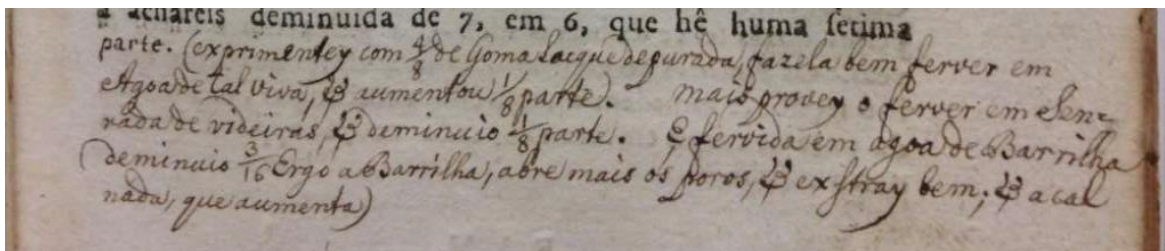 a achareis deminuida de 7, em 6, que hê huma ſetima
parte. (exprimentey com 4/8 de Goma Lacque depurada, fazela bem ferver em
Agoa de Cal viva, & aumentou 1/8 parte). mais provey o ferver em Sen=
rada de videiras, & deminuio 1/8 parte. E fervida em agoa de Barrilha
deminuio 3/16 Ergo a Barrilha, abre mais os poros, & exstray bem; & a cal
nada, que aumenta)